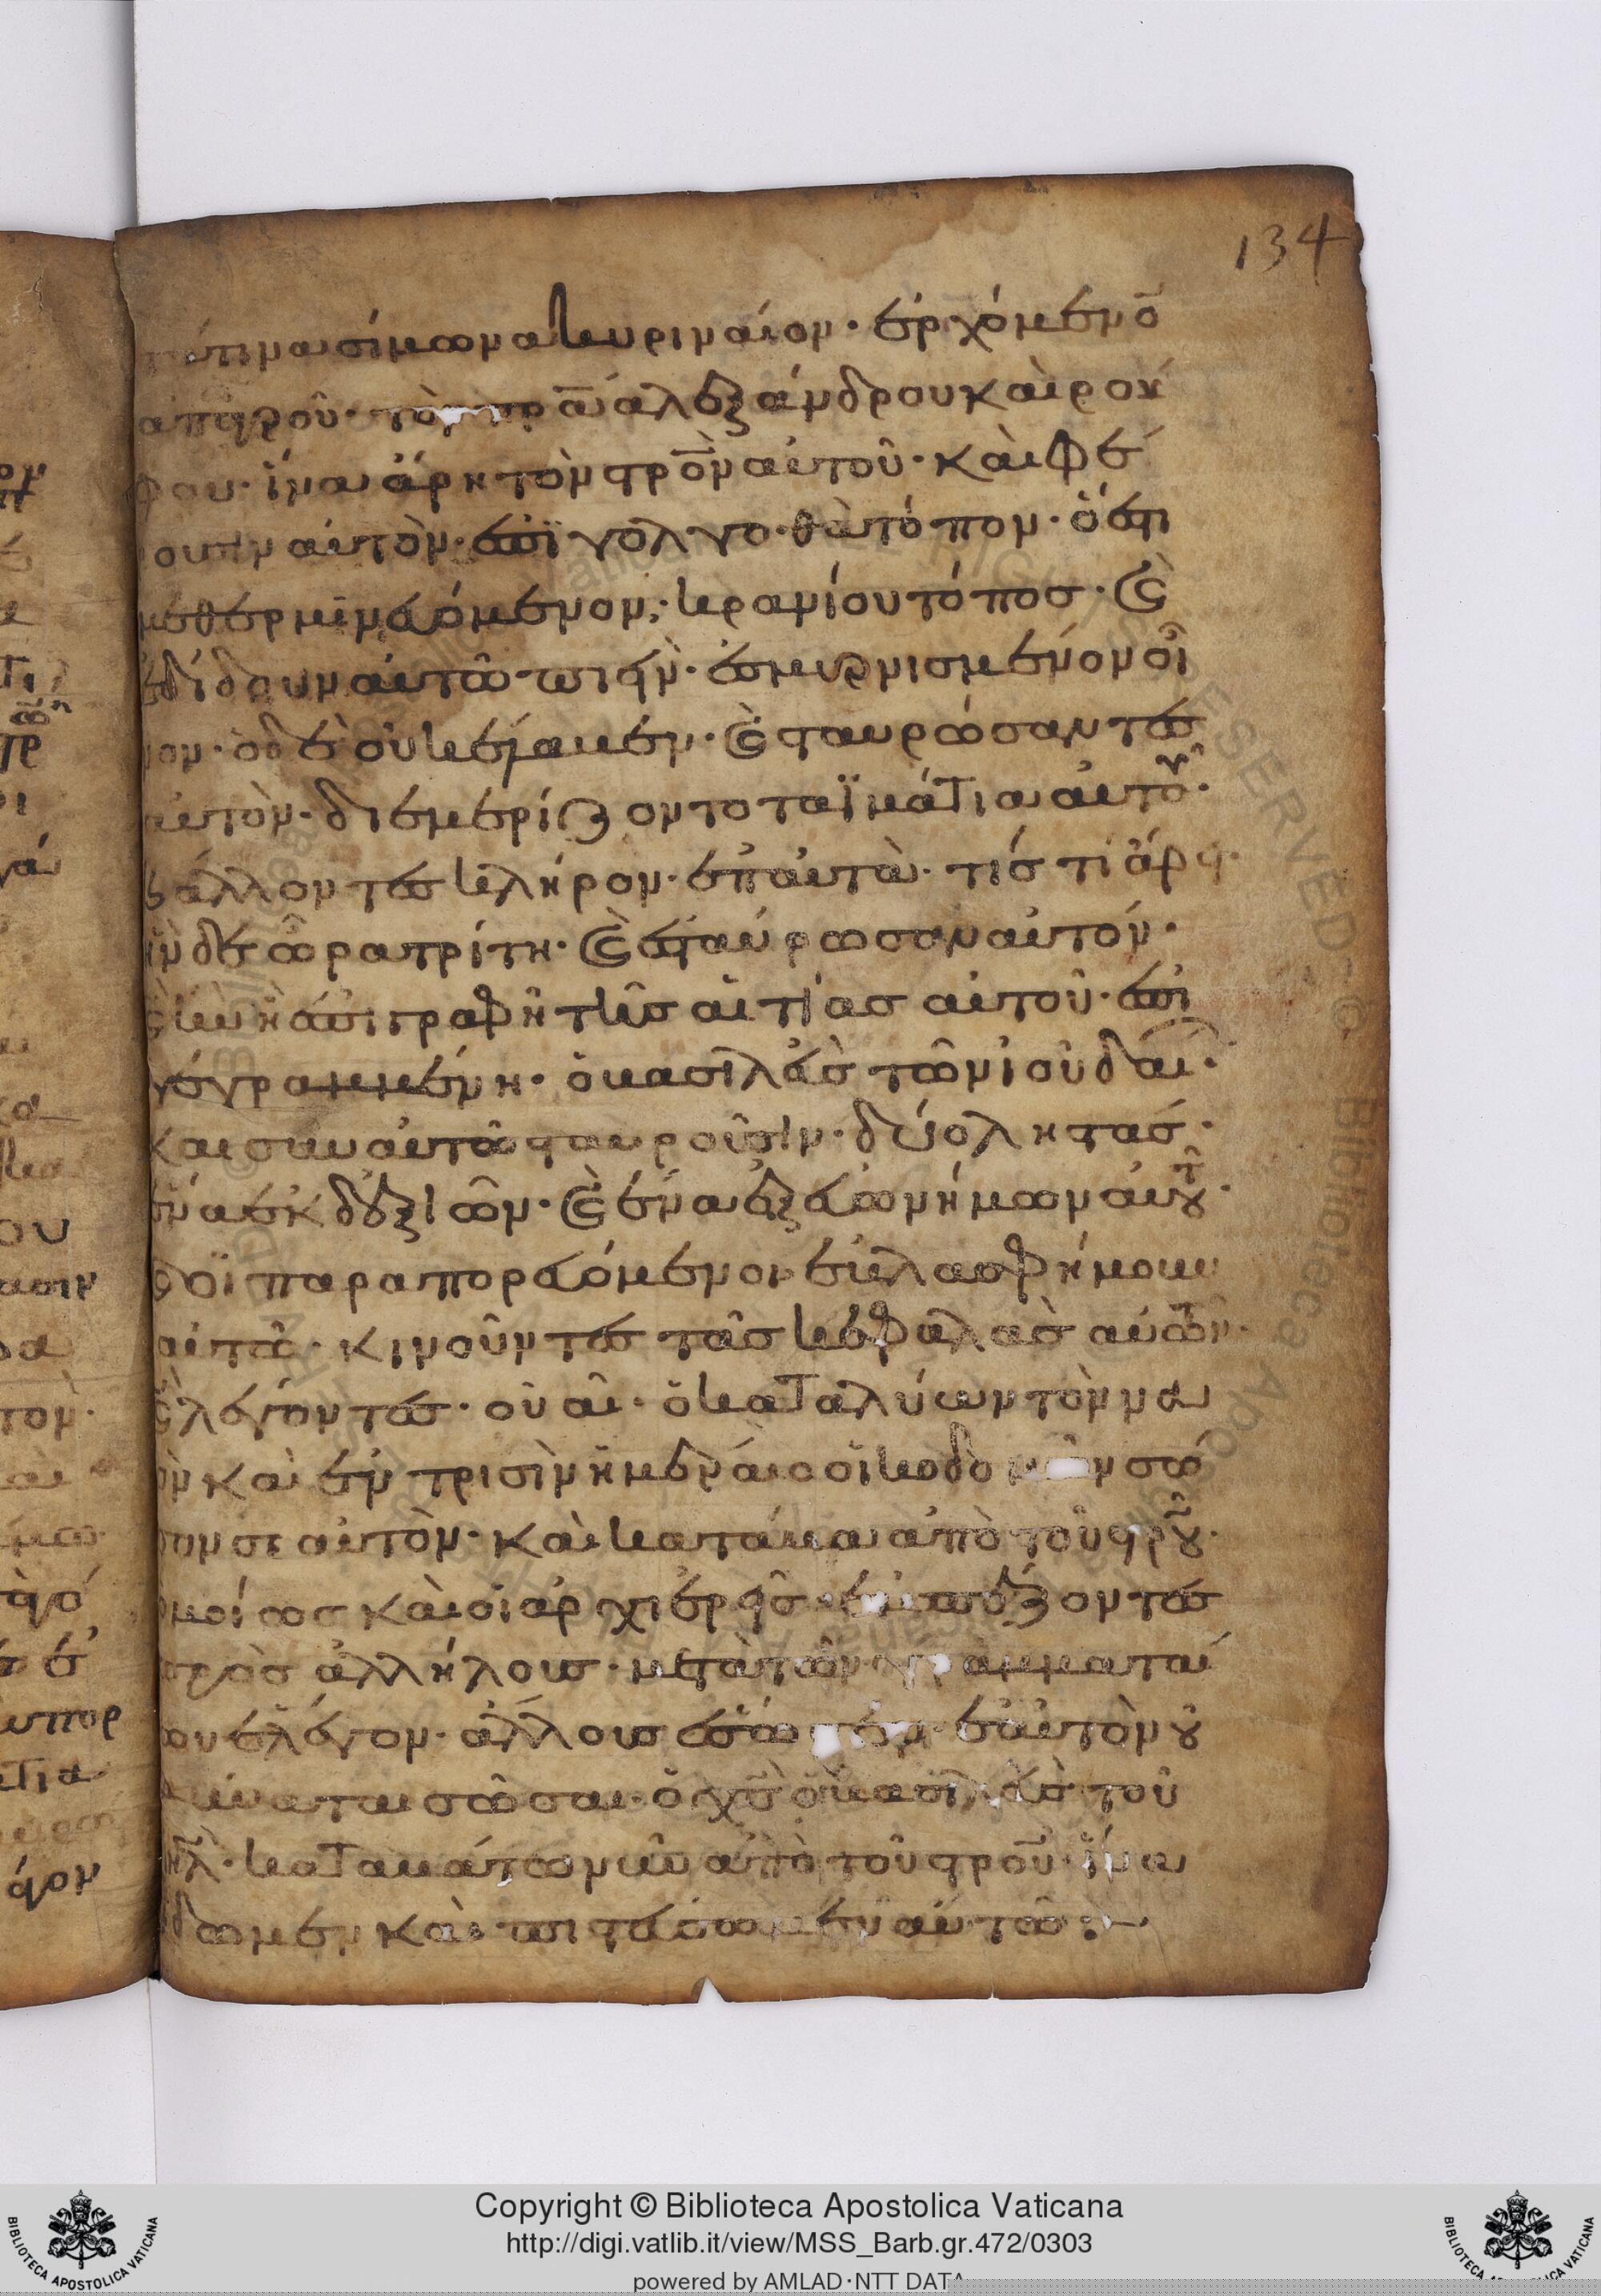 134
τίνα σίμωνα κυριναίον· ἐρχόμενο̅
ἀπ ἀγροῦ· τὸν πρ̅α ἀλεξάνδρου καὶ ρού
φου· ἵνα ἄρη τὸν στρο̅ν αὐτοῦ· καὶ φέ
ρουσιν αὐτὸν· ἐπὶ γολγοθὰ τόπον· ὅ ἐστι
μεθερμηνευόμενον· κρανίου τόποσ· καὶ
ἐδίδουν αὐτῶ πιεῖν· ἐσμυρνισμένον οἶ
νον· ὁ δὲ οὐκ ἔλαβεν· καὶ σταυρώσαντες
αὐτὸν· διεμερίζοντο τὰ ϊμάτια αὐτοῦ·
βάλλοντες κλήρον· ἐπ αὐτὰ· τίσ τί ἄρει·
ἦν δὲ ὥρα τρίτη· καὶ ἐσταύρωσαν αὐτόν·
καὶ ἦν ἡ ἐπιγραφὴ τῆσ αἰτίασ αὐτοῦ· ἐπι
γεγραμμένη· ὁ βασιλεὺσ τῶν ἰουδαί·
και σὺν αὐτῶ σταυροῦσιν· δύο ληστασ·
ἕνα ἐκ δεξιῶν· καὶ ἕνα ἐξ εὐωνήμων αὐτοῦ·
καὶ οἱ παραπορευόμενοι ἐβλασφήμουν
αὐτῶ· κινοῦντες τὰσ κεφαλὰσ αὐτῶν·
καὶ λέγοντες· οὐαὶ· ὁ καταλύων τὸν να
ὸν καὶ ἐν τρισὶν ἡμέραισ οἰκοδομῶν σῶ
σον σε αὐτὸν· καὶ κατάβα ἀπὸ τοῦ στρ̅ου·
ὁμοίωσ καὶ οἱ ἀρχιερεῖσ· ἐμπαίζοντες
πρὸσ ἀλλήλουσ· μετὰ τῶν γραμματαί
ων ἔλεγον· ἄλλουσ ἔσωσεν· ἑαυτὸν οὐ
δύναται σῶσαι· ὁ χ̅σ ὁ βασιλεὺσ τοῦ
ιη̅λ· καταβάτω νῦν ἀπὸ τοῦ στρο̅υ· ἵνα
ἴδωμεν καὶ πιστεύσωμεν αὐτῶ:
Copyright © Biblioteca Apostolica Vaticana
http://digi.vatlib.it/view/MSS_Barb.gr.472/0303
powered by AMLAD·NTT DATA
BIBLIOTECA APOSTOLICA VATICANA
BIBLIOTECA APOSTOLICA VATICANA